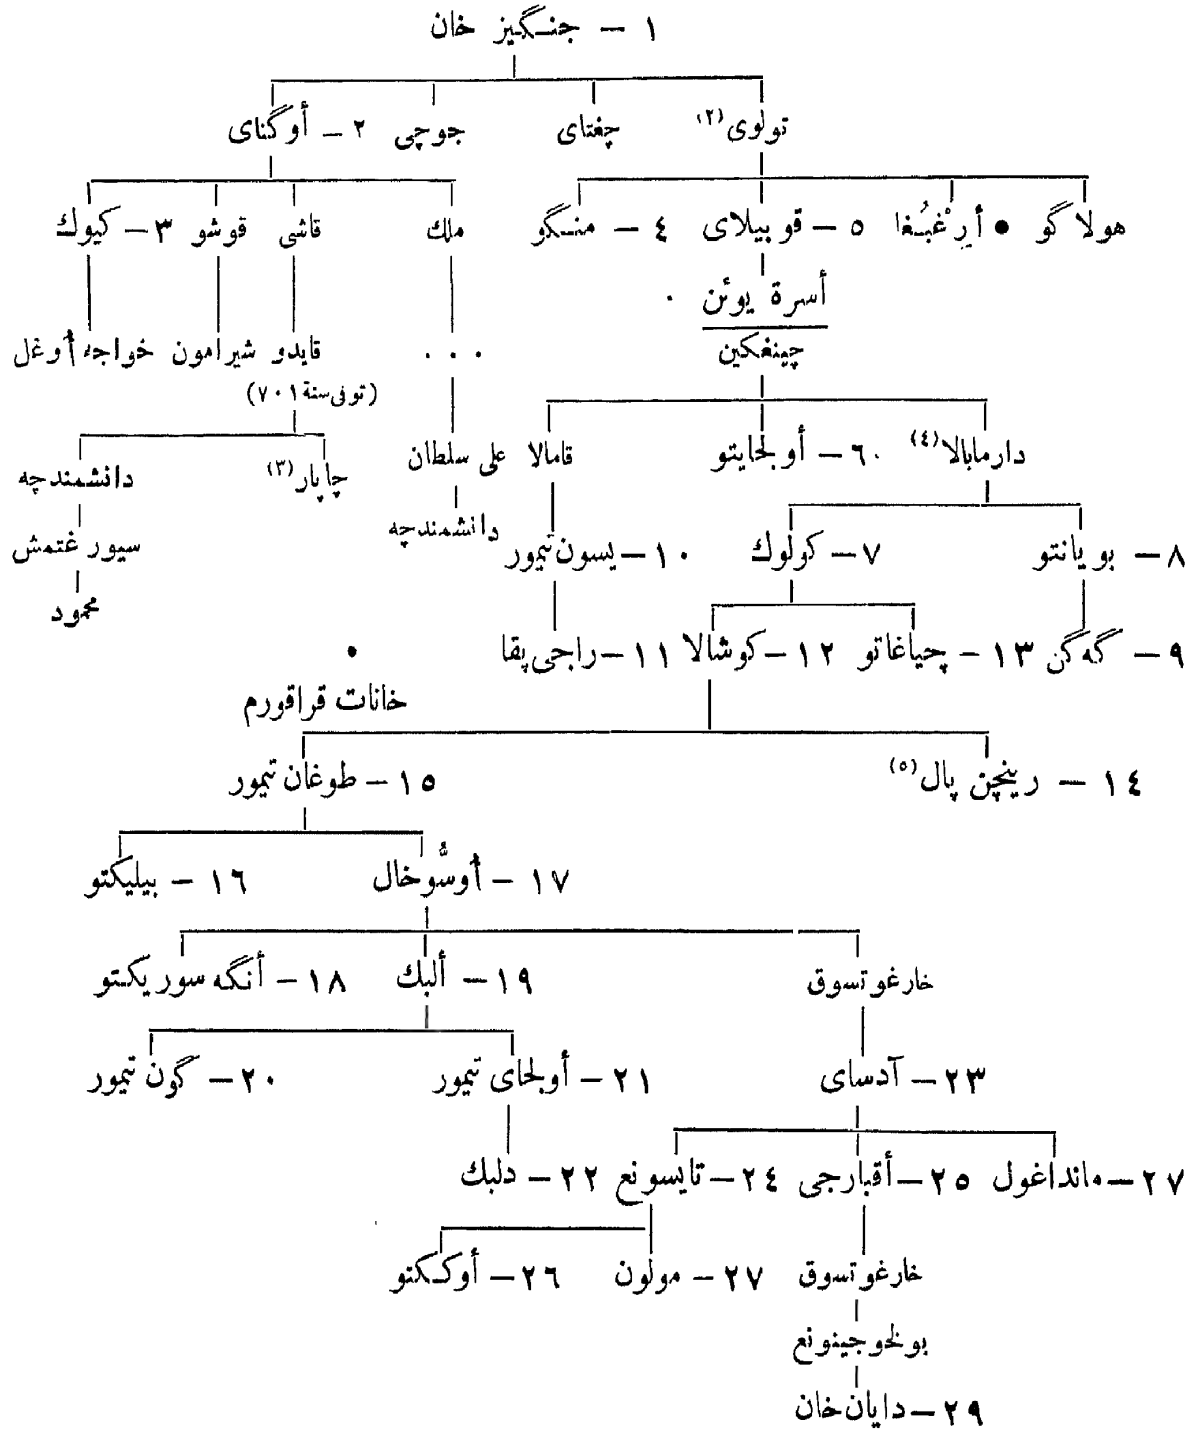 ١ – جنگيز خان
تولوى (٢) چغتاى جوچى ٢ – أوگتاى
هولاگو • أرِغْبُغا ٥ – قوبيلاى ٤ – منگو ملك قاشى قوشو ٣ – كيوك
أسرة يوئن
چينغكين ... قايدو شيرامون خواجه أوغل
(توفى سنة ٧٠١)
دارمابالا (٤) ٦ – أولجايتو قامالا على سلطان چاپار (٣) دانشمندچه
٨ – بويانتو ٧ – كولوك ١٠ – يسون تيمور دانشمندچه سيورغتمش
محمود
٩ – گه گن ١٣ – چياغاتو ١٢ – كوشالا ١١ – راجى پقا
خانات قراقورم
١٤ – رينچن پال (٥) ١٥ – طوغان تيمور
١٧ – أوسُّوخال ١٦ – بيليكتو
خارغوتسوق ١٩ – ألبك ١٨ – أنگه سوريكتو
٢٣ – آدساى ٢١ – أولجاى تيمور ٢٠ – گون تيمور
٢٧ – مانداغول ٢٥ – أقبارجى ٢٤ – تايسونغ ٢٢ – دلبك
خارغوتسوق ٢٧ – مولون ٢٦ – أوككتو
بولخوجينونغ
٢٩ – دايان خان